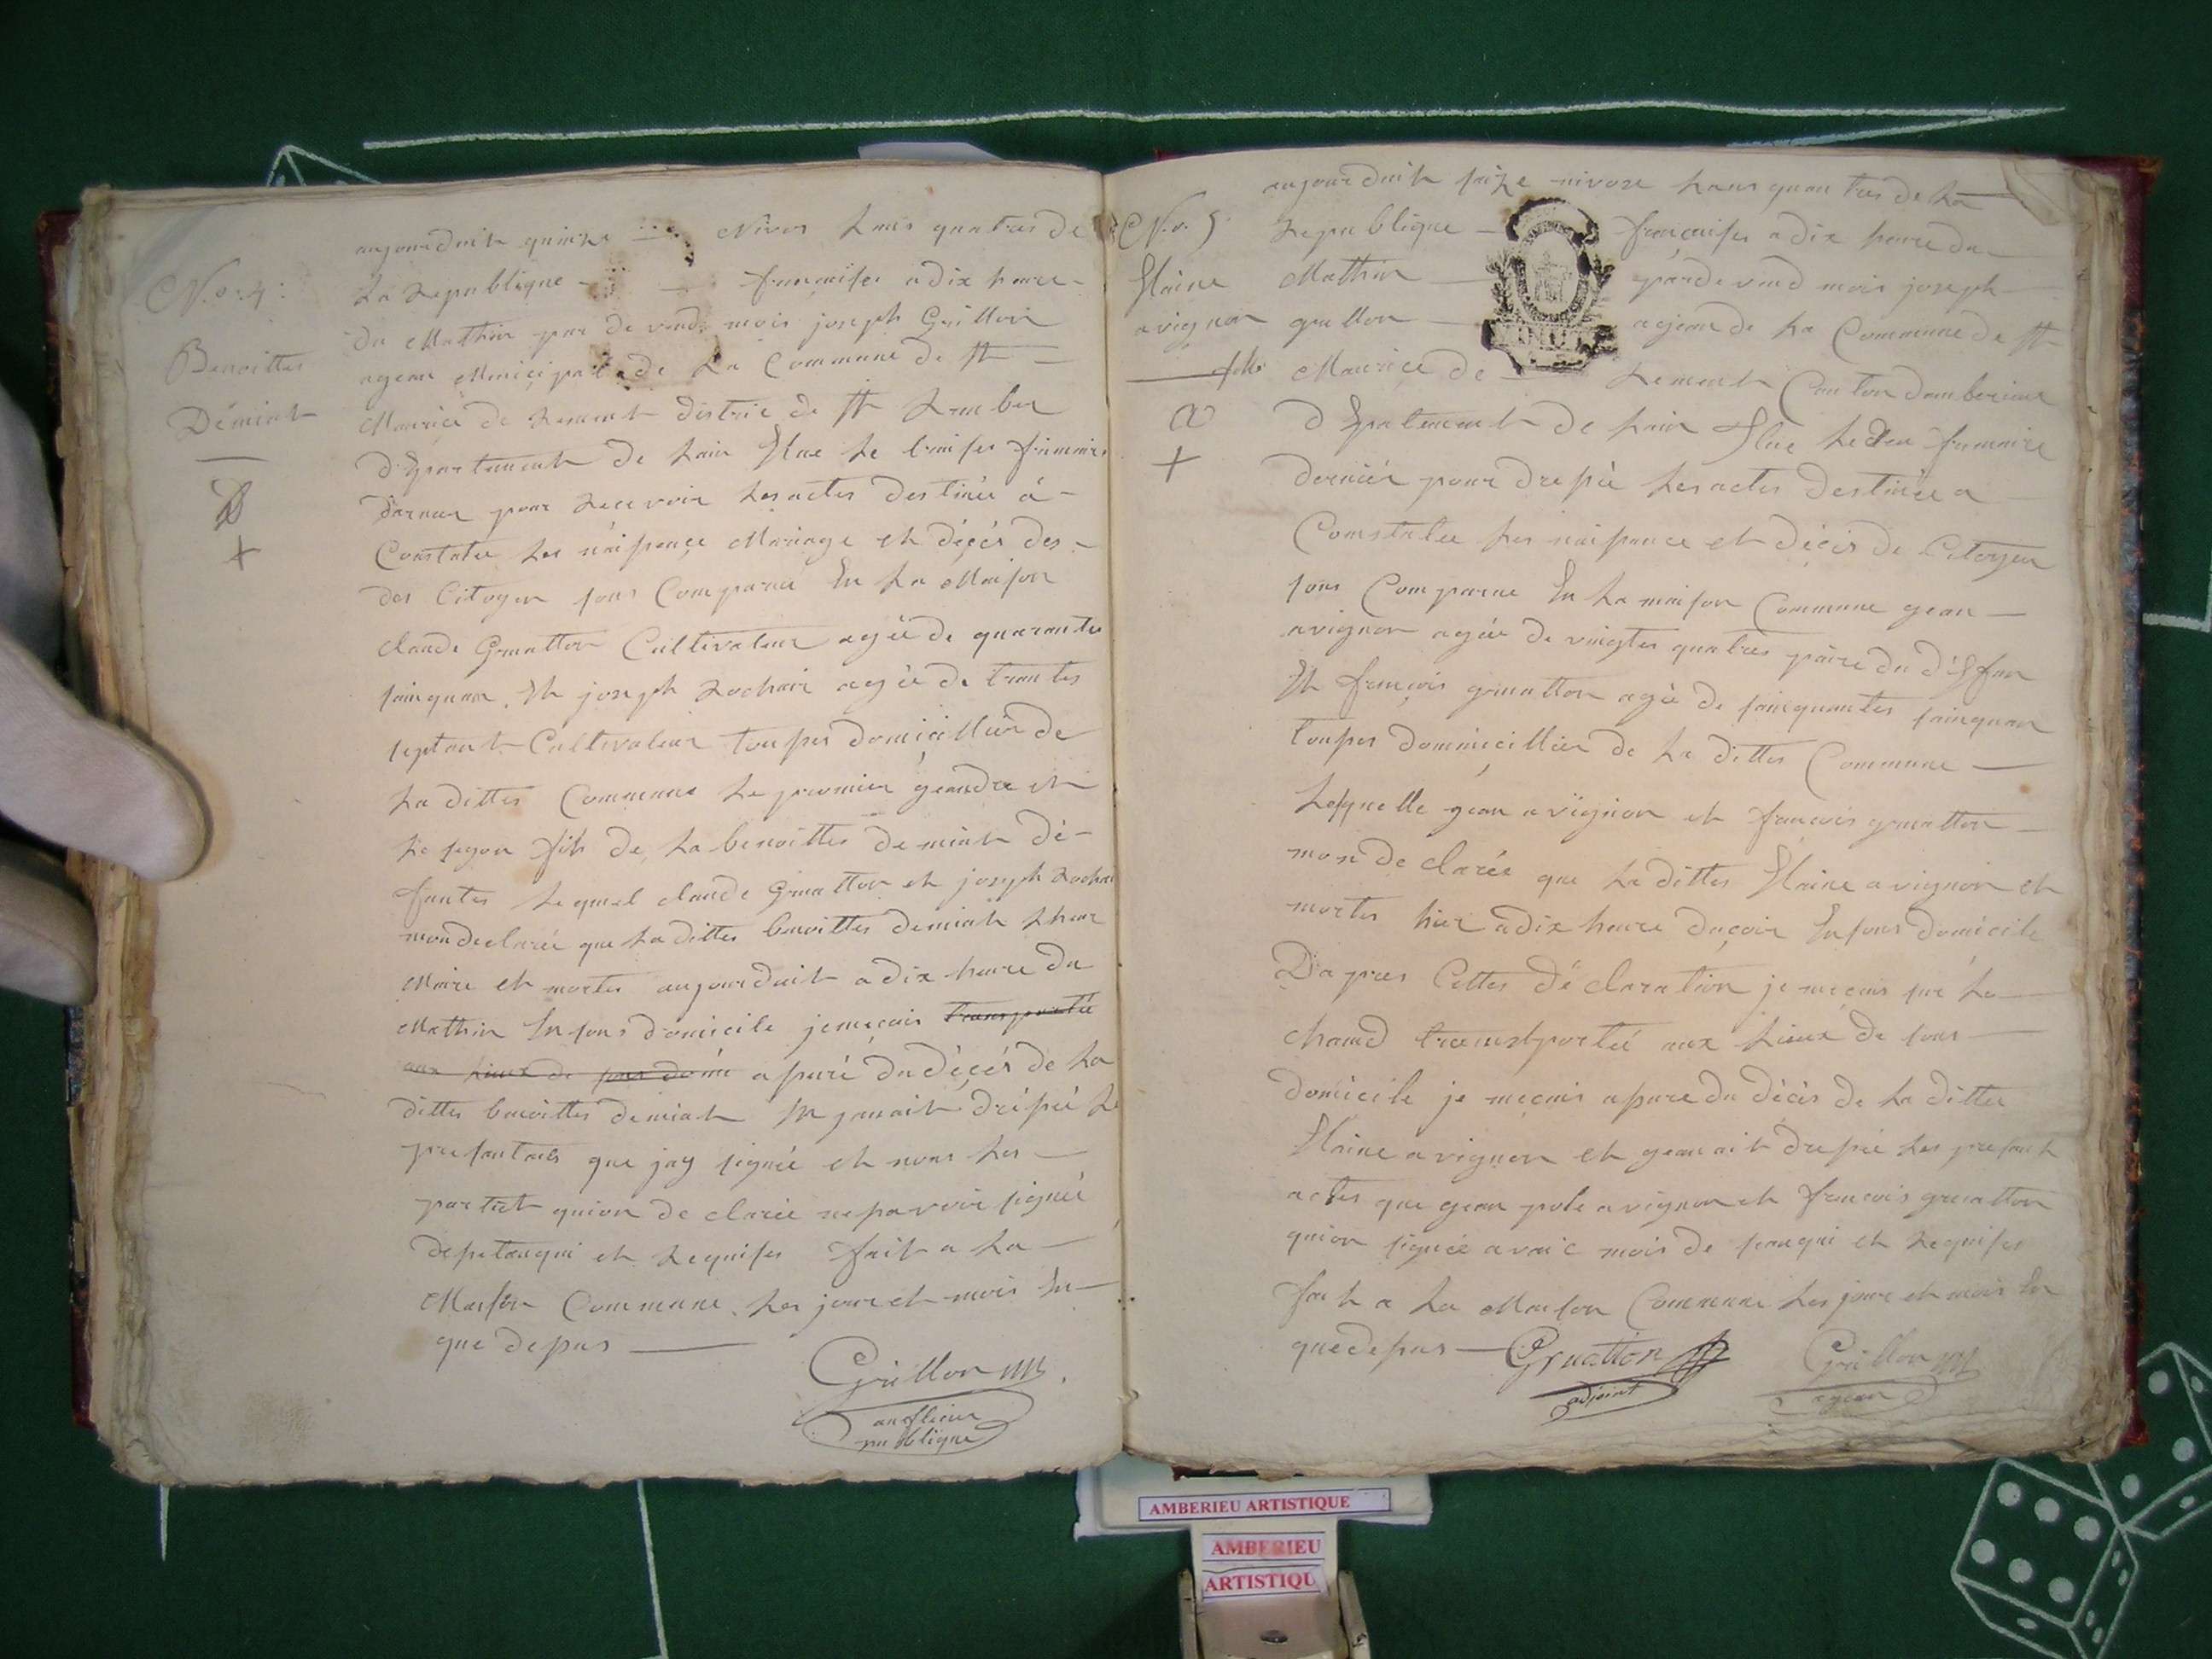 N.o: 4:
Benoittes
Démiat
D
+
aujourduit quinze Nivos lans quatres de
la republique francaises a dix heure
du Mathin par devend mois joseph Grillon
agean Municipal de la Commune de st
Maurice de rement distric de st ramber
d'Epartement de lain Elue le traises frimaire
darnier pour recevoir les actes destinée à
Constatée les naisençe Mariage et déçés des
des Citoyen sons Comparue En la Maison
claude Gruatton Cultivateur agée de quarantes
sainquan. Et joseph rochair agée de trantes
septant Cultivateur touses domiçilliér de
la dittes Commune le premier geandre et
le segon fils de la benoittes demiat dé-
funtes lequel claude Gruatton et joseph rochai
mon declarée que la dittes benoittes demiat
Maire et mortes aujourduit a dix heure du
Mathin En sons domicile je meçuis transportée
aux lieux de sons domi asuré du déçés de la
dittes benoittes demiat En gauait drésée le
presantaes que jay signée et nons les
partiet quion de clarée nesavoir signée
desetanqui et requises fait a la
Maison Commune les jour et mois En
que desus
Grillon
an oflicier
publique
N.o. 5
Elaine
avignon
fille
a
+
aujourduit saize nivose lans quatres de la
republique françaises a dix heure du
Mathin pardevend mois joseph
grullon agean de la Commune de st
Mauriçe de rement Canton damberieux
dEpatement de lain Elue le deu frimaire
derniér pour dresée les actes destinée a
Constatée les naisance et déçés de Citoyen
sons Comparue En la maison Commune gean
avignon agée de vingtes quatres païre du dEfun
Et françois gruatton agée de sainquantes sainquan
touses dommiçilliér de la dittes Commune
lesquelle gean avignon et françois gruatton
mon declarée que la dittes Elaine avignon et
mortes hier a dix heure duçoir En sons domicile
Dapres Cettes déclaration je meçuis sur le
chamd transtportée aux lieux de sons
domicile je meçuis asure du déçés de la dittes
Elaine avignon et geanait dresée les presant
actes que gean pole avignon et francois gruatton
quion signée avaic mois de seauqui et requises
fait a la Maison Commune les jour et mois En
que desus
Gruatton
adjoint
Grillon
agean
AMBERIEU ARTISTIQUE
AMBERIEU
ARTISTIQU